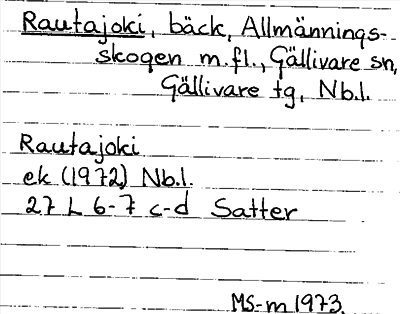 Rautajoki, bäck, Allmännings-
skogen m.fl., Gällivare sn,
Gällivare tg, Nb.l.
Rautajoki
ek (1972) Nb.l.
27 L 6-7 c-d Satter
MS-m 1973.